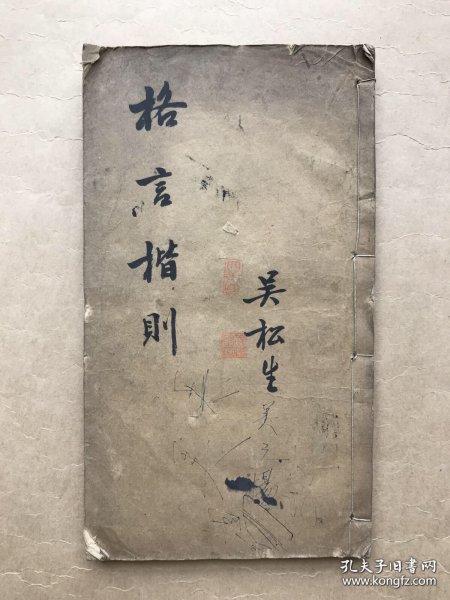 格言楷則
吴松生
孔夫子旧书网
www.kongfz.com